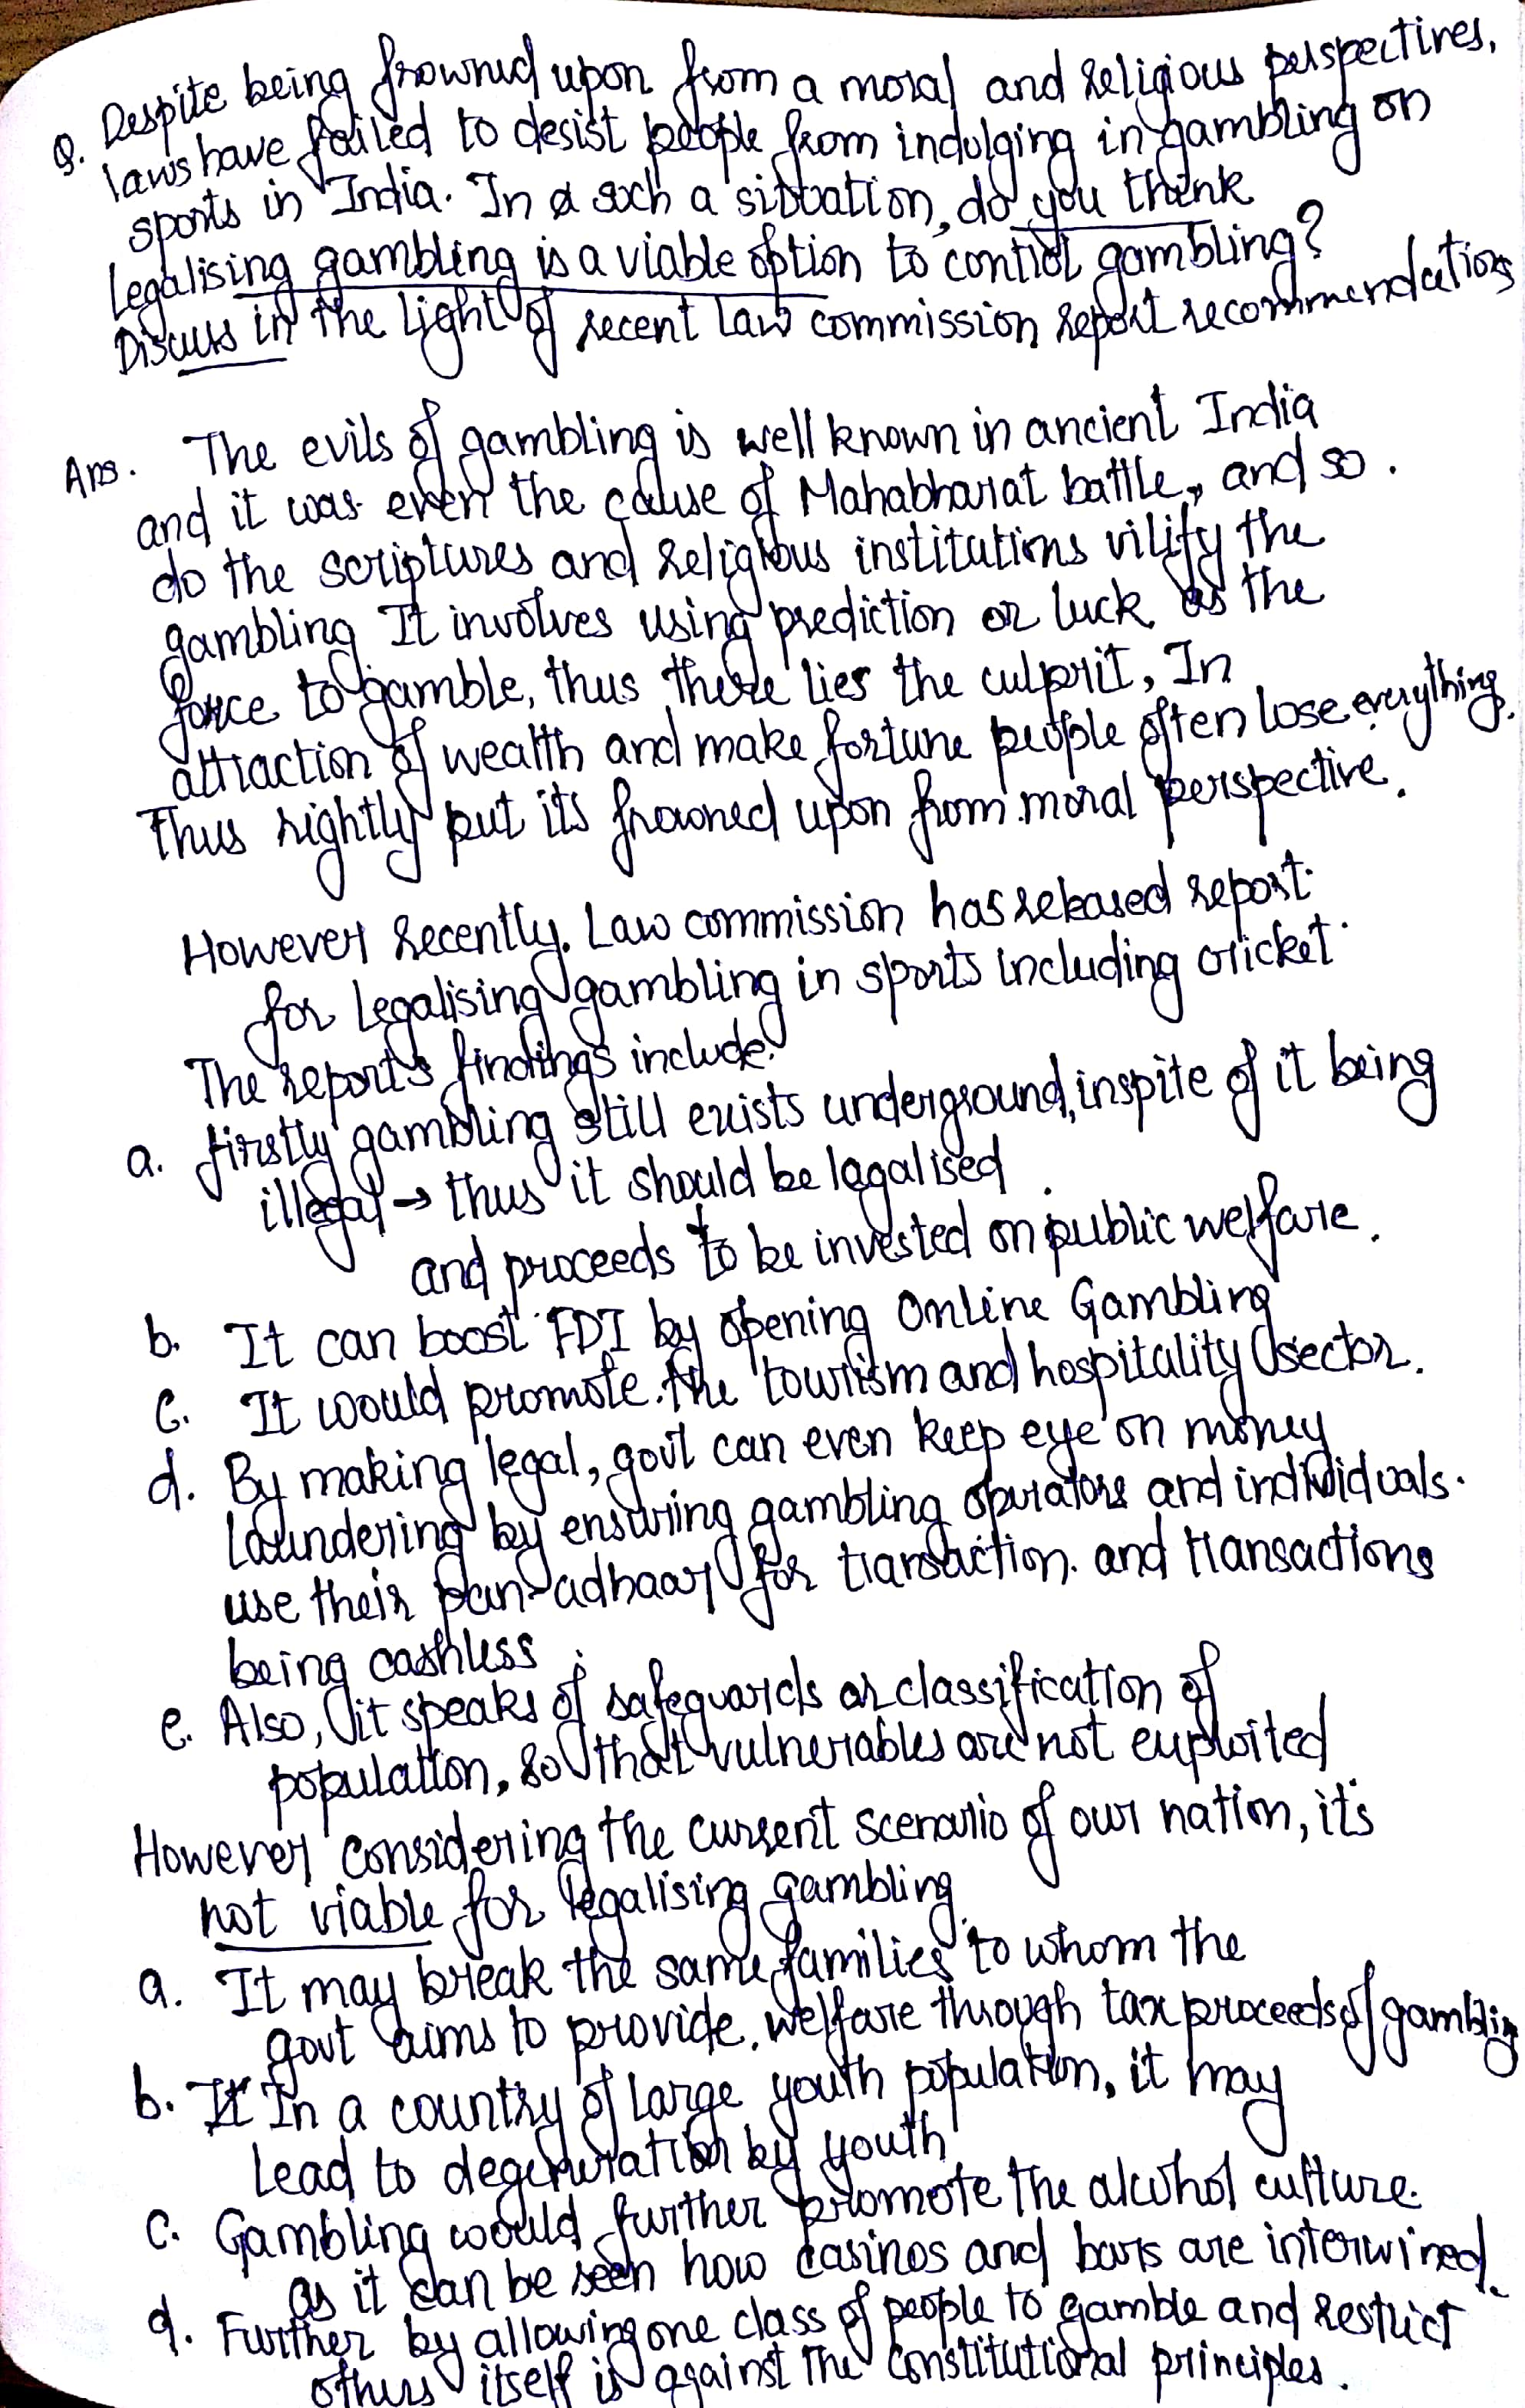 Q. Despite being frowned upon from a moral and religious perspectives,
laws have failed to desist people from indulging in gambling on
sports in India. In a such a situation, do you think
legalising gambling is a viable option to control gambling?
Discuss in the light of recent law commission report recommendations
Ans. The evils of gambling is well known in ancient India
and it was even the cause of Mahabharat battle, and so.
do the scriptures and religious institutions vilify the
gambling It involves using prediction or luck as the
force to gamble, thus there lies the culprit, In
attraction of wealth and make fortune people often lose everything.
Thus rightly put its frowned upon from moral perspective.
However recently. Law commission has released report.
for legalising gambling in sports including cricket.
The report's findings include:
a. firstly gambling still exists underground, inspite of it being
illegal → thus it should be lagalised.
and proceeds to be invested on public welfare.
b. It can boost FDI by opening Online Gambling
c. It would promote. the tourism and hospitality sector.
d. By making legal, govt can even keep eye on money
laundering by ensuring gambling operators and individuals.
use their pan-adhaar for transaction. and transactions
being cashless.
e. Also, it speaks of safeguards or classification of
population, so that vulnerables are not exploited
However considering the current scenario of our nation, it's
not viable for legalising gambling.
a. It may break the same families to whom the
govt aims to provide. welfare through tax proceeds of gambling
b. It In a country of large youth population, it may
lead to degeneration by youth
c. Gambling would further promote the alcohol culture.
as it can be seen how casinos and bars are interwined.
d. Further by allowing one class of people to gamble and restrict
others itself is against the constitutional principles.